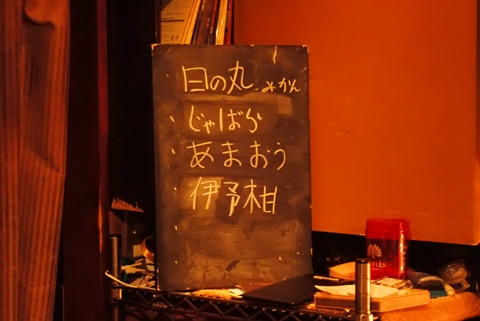 日の丸 みかん
・じゃばら
・あまおう
・伊予柑